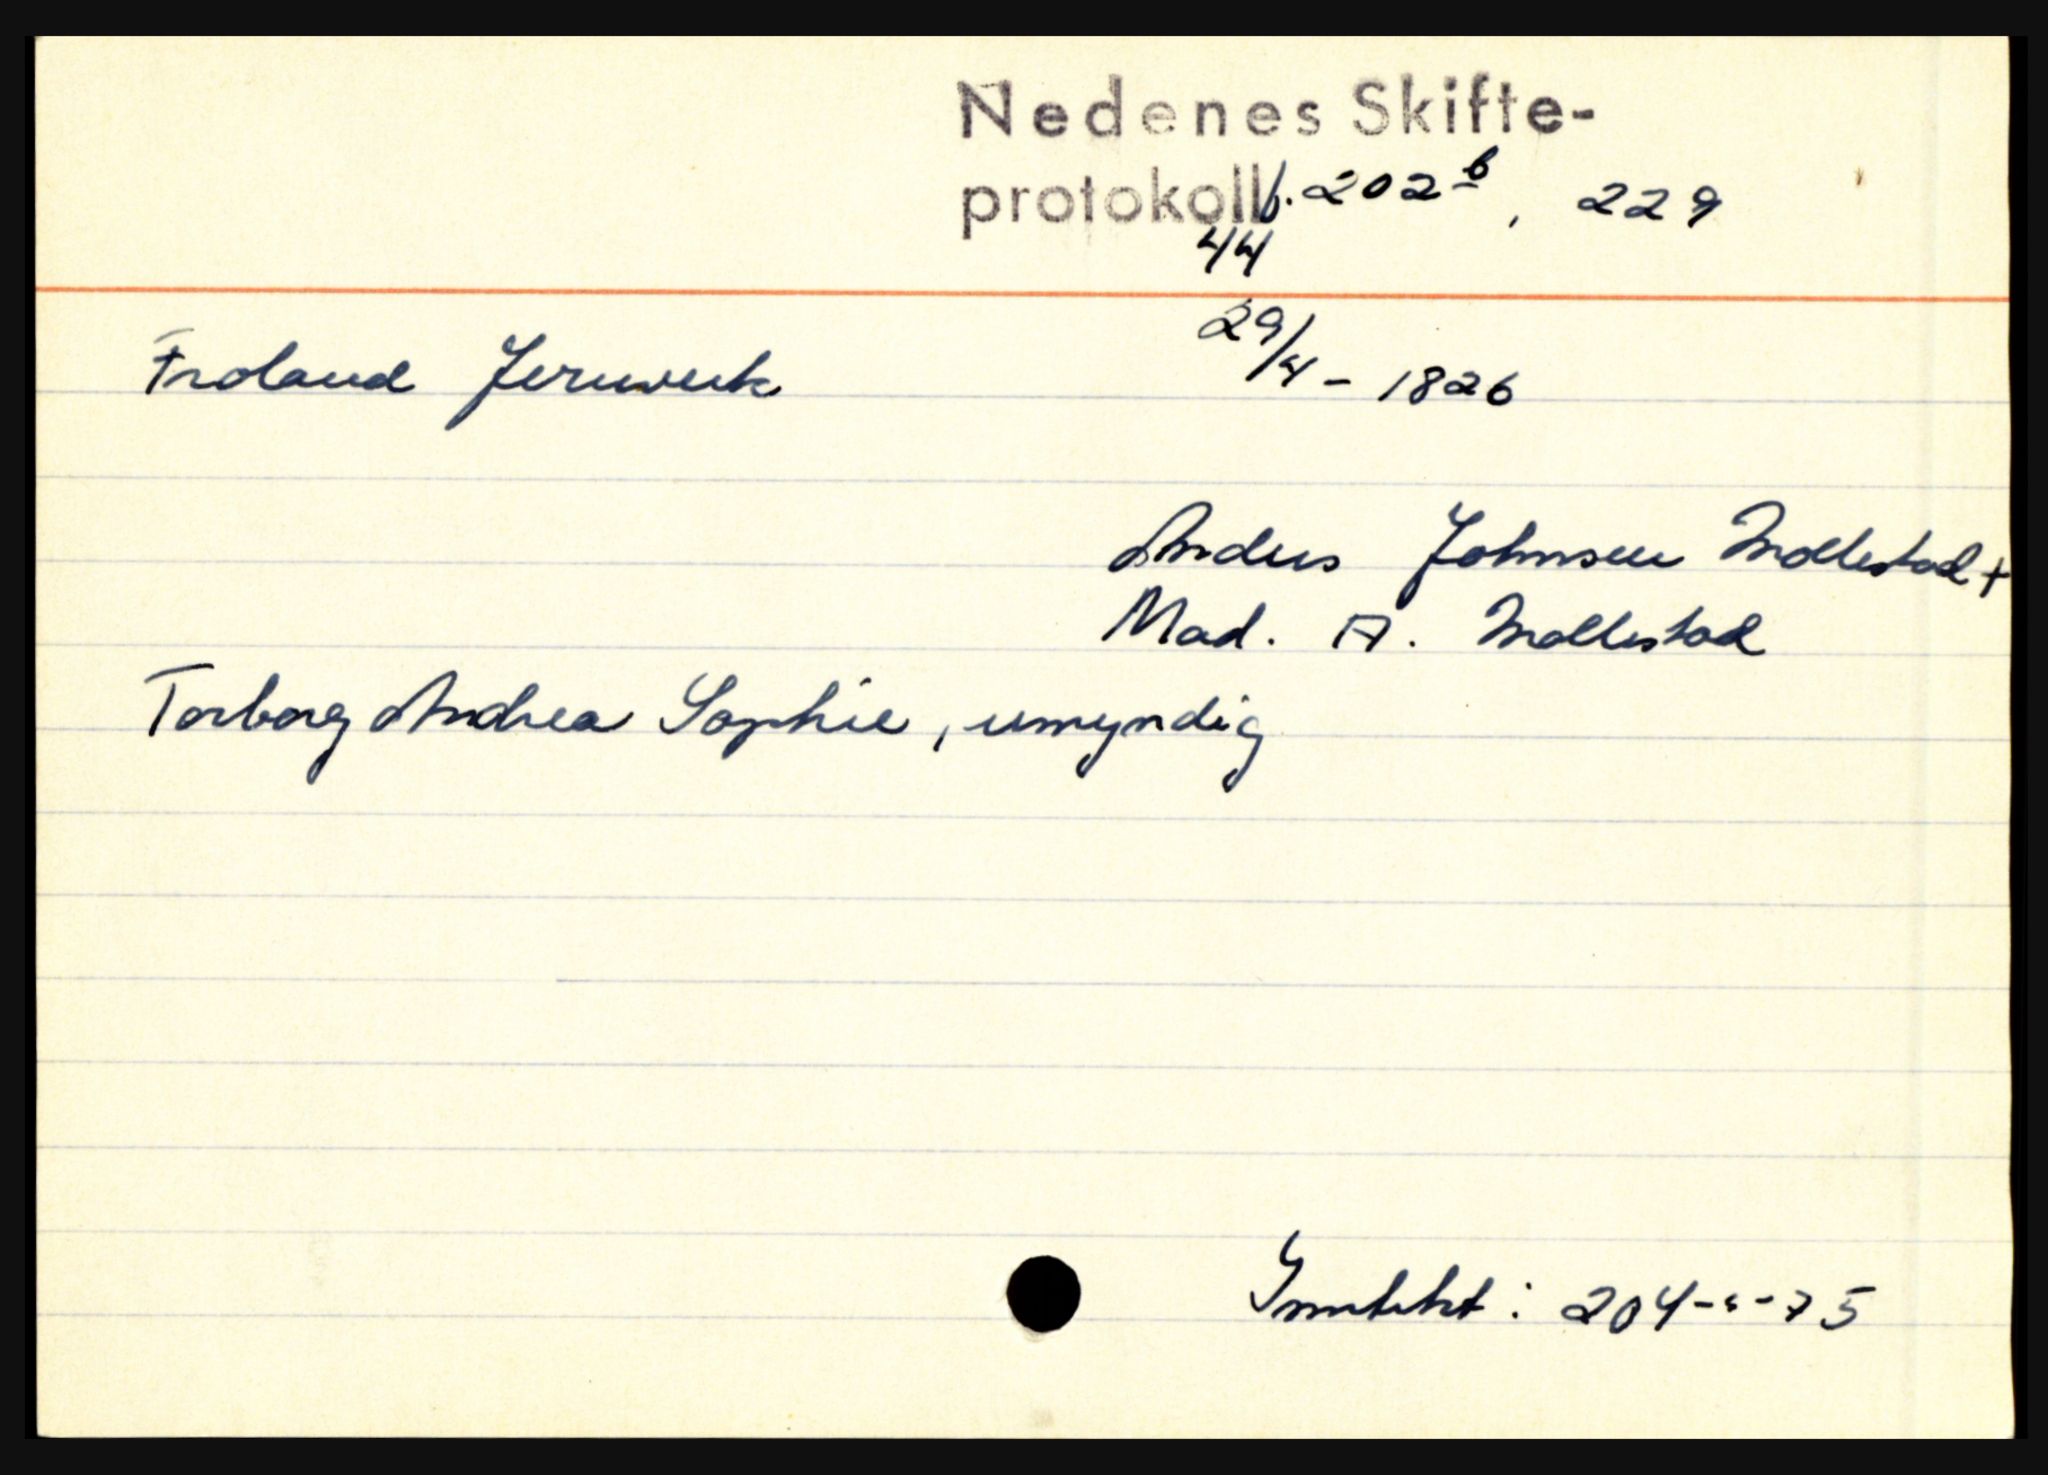 Nedenes Skifte-
protokoll f. 202b, 229
44
29/4 - 1826
Froland Jernverk
Anders Johnsen Mollestad +
Mad. A. Mollestad
Torborg Andrea Sophie, umyndig
204-"-75